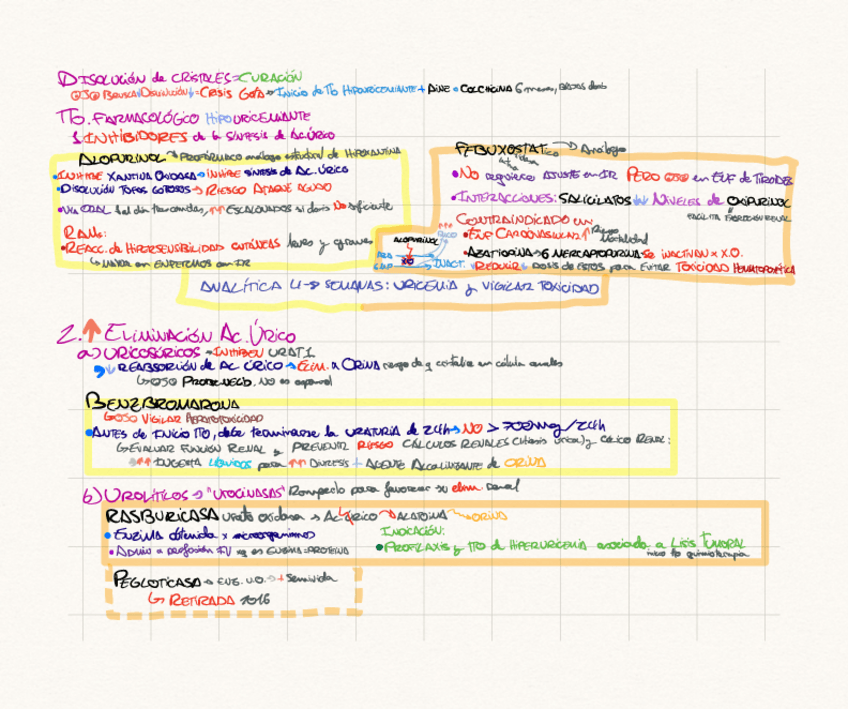 DISOLUCIÓN de CRISTALES = CURACIÓN
OJO BRUSCA DISMINUCIÓN = CRISIS GOTA → INICIO de TTO HIPOURICEMIANTE + AINE o COLCHICINA 6 meses, BAJAS dosis
TTO. FARMACOLÓGICO HIPOURICEMIANTE
1. INHIBIDORES de la SÍNTESIS de AC. ÚRICO
ALOPURINOL → PROFÁRMACO análogo estructural de HIPOXANTINA
• INHIBE XANTINA OXIDASA → INHIBE SÍNTESIS de AC. ÚRICO
• DISOLUCIÓN TOFOS GOTOSOS → RIESGO ATAQUE AGUDO
• Vía ORAL 1 al día tras comidas, ↑↑ ESCALONADOS si dosis NO suficiente
RAM:
• REACC. de HIPERSENSIBILIDAD CUTÁNEAS leves y graves
↳ en ENFERMOS con IR
FEBUXOSTAT → Análogo
• NO requiere AJUSTE en IR PERO OJO en ENF de TIROIDES
• INTERACCIONES: SALICILATOS ↓↓ NIVELES de OXIPURINOL
FACILITA ELIMINACIÓN RENAL
CONTRAINDICADO en
• ENF CARDIOVASCULAR Riesgo Mortalidad
• AZATIOPINA → 6 MERCAPTOPURINA SE INACTIVAN x X.O.
REDUCIR DOSIS de ESTOS para EVITAR TOXICIDAD HEMATOPOYÉTICA
ALOPURINOL
XO
INACT.
ANALÍTICA 4-8 SEMANAS: URICEMIA y VIGILAR TOXICIDAD
2. ↑ ELIMINACIÓN AC. ÚRICO
a) URICOSÚRICOS → INHIBEN URAT1
↓ REABSORCIÓN DE AC ÚRICO → ELIM. a ORINA riesgo de q cristalice en célula canales
↳ OJO PROBENECID, NO en español
BENZBROMARONA
OJO VIGILAR HEPATOTOXICIDAD
• ANTES de INICIO TTO, debe determinarse la URATURIA de 24h → NO > 700mg/24h
↳ EVALUAR FUNCIÓN RENAL y PREVENIR RIESGO CÁLCULOS RENALES (litiasis úrica) y CÓLICO RENAL:
→ ↑↑ INGESTA LÍQUIDOS para ↑↑ DIURESIS + AGENTE ALCALINIZANTE de ORINA
b) UROLÍTICOS → "UROCINASAS" Romperlo para favorecer su elim. renal
RASBURICASA urato oxidasa → Ac. Úrico → ALANTOINA → ORINA
• ENZIMA obtenida x microorganismos
• ADMIN a perfusión IV xq es ENZIMA = PROTEÍNA
INDICACIÓN:
• PROFILAXIS y TTO de HIPERURICEMIA asociada a LISIS TUMORAL
inicio tto quimioterapia
PEGLOTICASA → ENZ. U.O. → + Semivida
↳ RETIRADA 2016